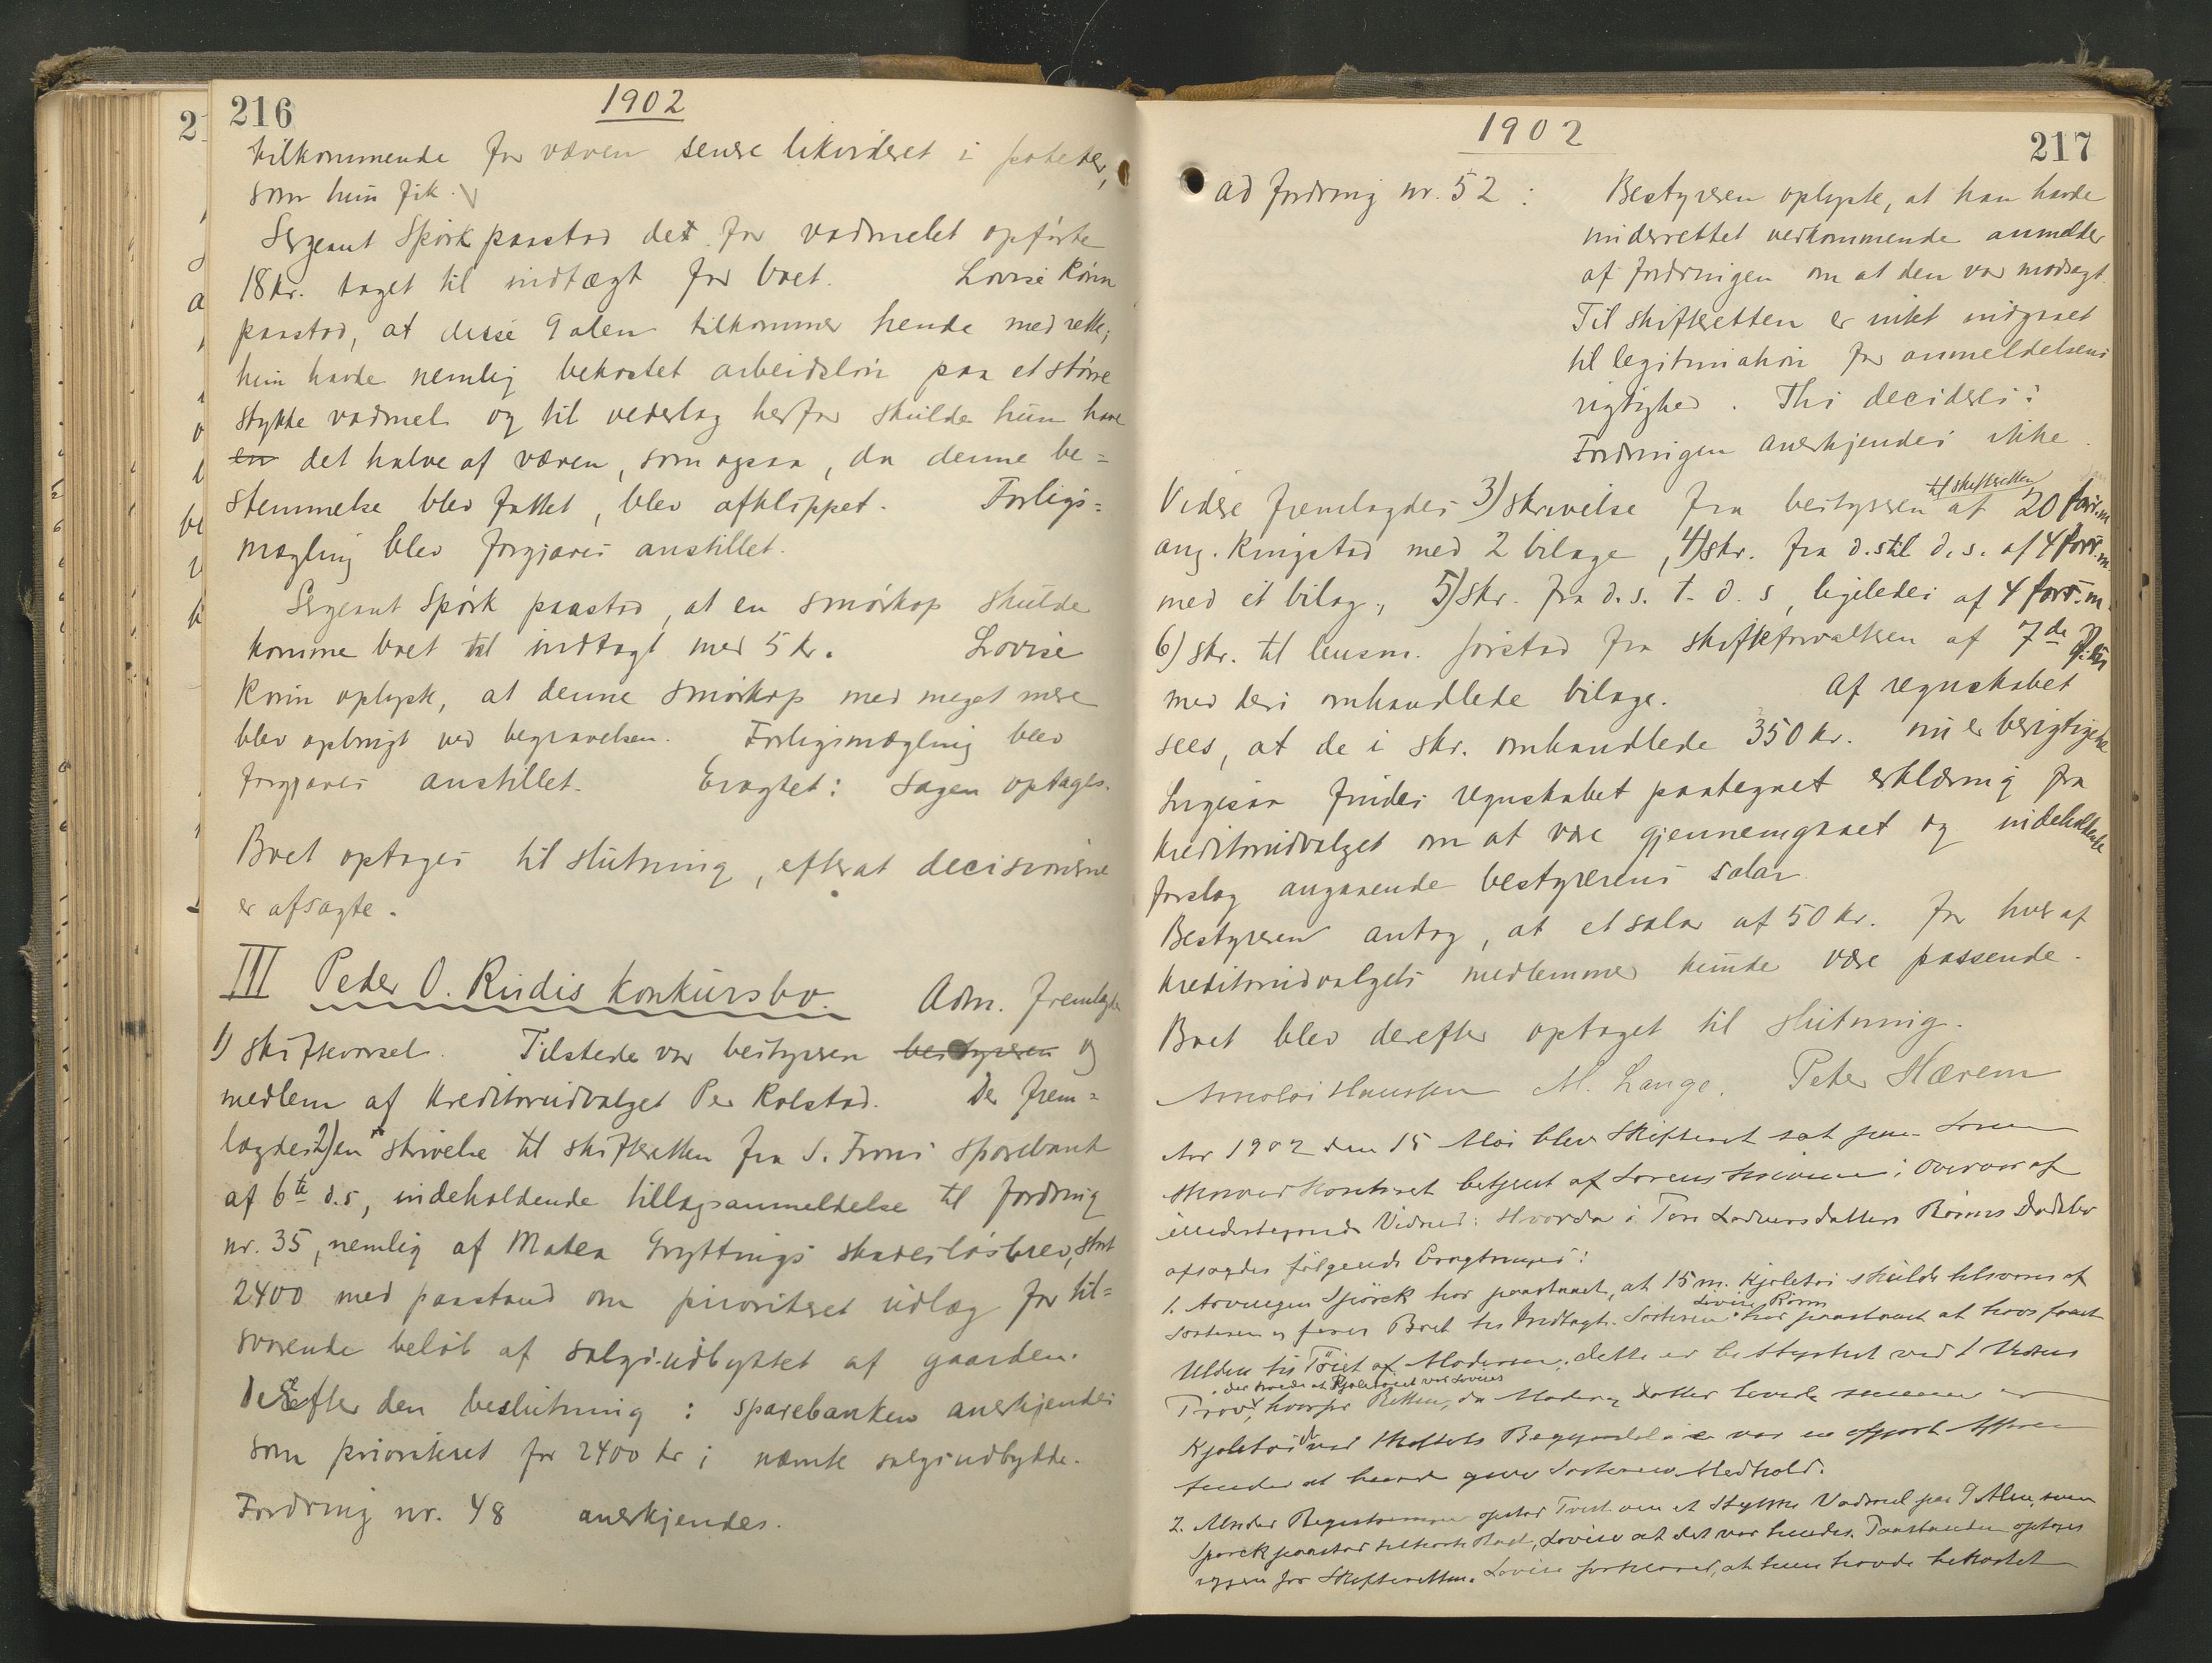 216
1902
tilkommende for væven senere likvideret i poteter,
som hun fik.
Sergeant Spörk paastod det for vadmelet opförte
18 kr. taget til indtægt for boet. Lovise Rönn
paastod, at disse 9 alen tilkommer hende med rette;
hun havde nemlig bekostet arbeidslön paa et större
stykke vadmel og til vederlag herfor skulde hun have
en det halve af væven, som ogsaa, da denne be=
stemmelse blev fattet, blev afklippet. Forligs=
mægling blev forgjæves anstillet.
Sergeant Spörk paastod, at en smörkop skulde
komme boet til indtægt med 5 kr. Lovise
Rönn oplyste, at denne smörkop med meget mere
blev opbrugt ved begravelsen. Forligsmægling blev
forgjæves anstillet. Eragtet: Sagen optages.
Boet optages til slutning, efterat decisionerne
er afsagte.
III Peder O. Rudis konkursbo. Adm. fremlagde
1) skiftevarsel. Tilstede var bestyreren bestyreren og
medlem af kreditorudvalget Per Kolstad. Der frem=
lagdes 2) en skrivelse til skifteretten fra S. Frons sparebank
af 6te d.s, indeholdende tillægsanmeldelse til fordring
nr. 35, nemlig af Matea Gryttings skadeslösbrev, stort
2400 med paastand om prioriteret udlæg for til=
svarende belöb af salgsudbyttet af gaarden.
Derefter den beslutning: sparebanken anerkjendes
som prioriteret for 2400 kr i nævnte salgsudbytte.
Fordring nr. 48 anerkjendes.
1902
217
ad fordring nr. 52: Bestyreren oplyste, at han havde
underrettet vedkommende anmelder
af fordringen om at den var modsagt.
Til skifteretten er intet indgaaet
til legitimation for anmeldelsens
rigtighed. Thi decideres:
Fordringen anerkjendes ikke.
til skifteretten
Videre fremlagdes 3) skrivelse fra bestyreren af 20 forr.m
ang. Ringstad med 2 bilage, 4) skr. fra d.s til d.s. af 4 forr.m.
med et bilag, 5) skr. fra d.s. t. d.s, ligeledes af 4 forr.m.
6) skr. til lensm. fra skifteforvalteren af 7de
med deri omhandlede bilage. Af regnskabet
sees, at de i skr. omhandlede 350 kr. nu er berigtigede
Ligesaa findes regnskabet paategnet erklæring fra
kreditorudvalget om at være gjennemgaaet og indeholdende
forslag angaaende bestyrerens salær.
Bestyreren antog, at et salær af 50 kr. for hver af
kreditorudvalgets medlemmer kunde være passende.
Boet blev derefter optaget til slutning.
Arnoldi Hanssen M. Lange. Peter Hærem
Aar 1902 den 15 Mai blev Skifteret sat paa Soren
skriverkontoret betjent af Sorenskriveren i Overvær af
undertegnede Vidner: Hvorda i Tore Dödsbo
afsagdes fölgende Eragtninger:
1. Arvingen Spörck har paastaaet, at 15 m. Kjoletöi skulde tilsvares af
Lovise Rönn
Sösteren og föres Boet til Indtægt. Sösteren har paastaaet at have faaet
Ulden til Töiet af Moderen; dette er bestyrket ved 1 Vidnes
der svor at Kjoletöiet var Lovises
Prov, hvorfor Retten, da Moder og Datter levede sammen og
Kjoletöi ved Skiftets Begyndelse var en opgjort Affære
finder at burde give Sösteren Medhold.
2. Under Registreringen opstod Tvist om et Stykke Vadmel paa 9 Alen, som
Spörck paastod tilhörte Boet, Lovise at det var hendes. Paastanden optoges
igjen for Skifteretten. Lovise forklared, at hun havde bekostet